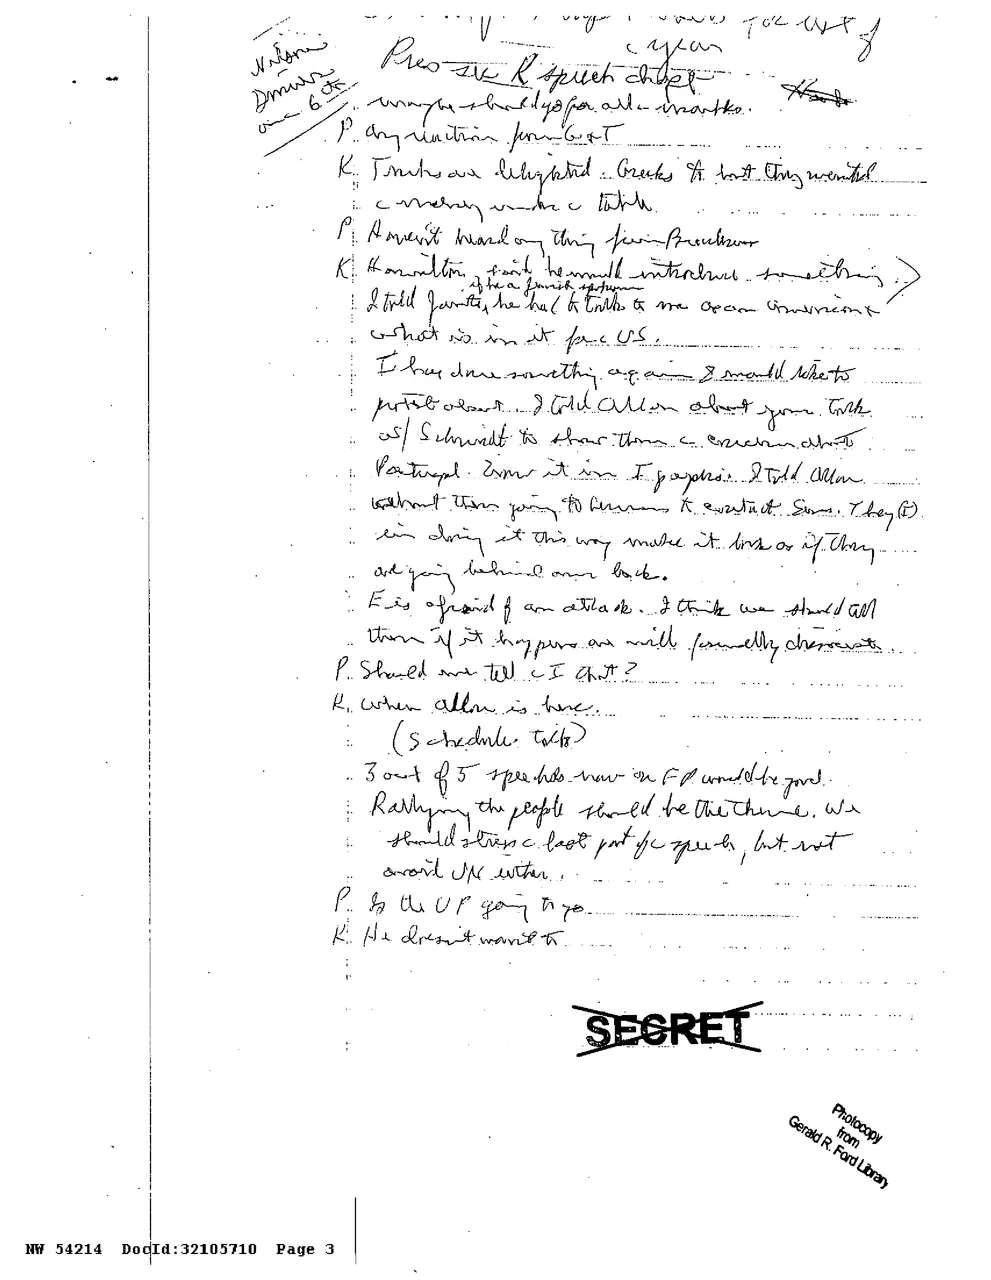 year
Pres see K speech draft
maybe should go for all = months.
P. Any reaction from G & T
K. Turks are delighted. Greeks OK but they wanted
money under table
P. Haven't heard anything from
K. Hamilton said he would introduce something.
if he a Jewish spokesman
I told Javits, he had to talk to me as an American &
what is in it for US.
I have done something again I would like to
about. I told Allon about your talk
w/ Schmidt to show them concern about
Portugal. Now it in I papers. I told Allon
about them going to Germans to contact Sovs. They (I)
in doing it this way make it look as if they
are going behind our back.
E is afraid of an attack. I think we should tell
them if it happens we will formally
P. Should we tell I that?
K. When Allon is here.
(Schedule talk)
3 out of 5 speeches now on FP would be good.
Rallying the people should be the theme. We
should stress last part of speech, but not
avoid UN either.
P. Is the VP going to go
K. He doesn't want to
SECRET
Photocopy
from
Gerald R. Ford Library
NW 54214 DocId:32105710 Page 3